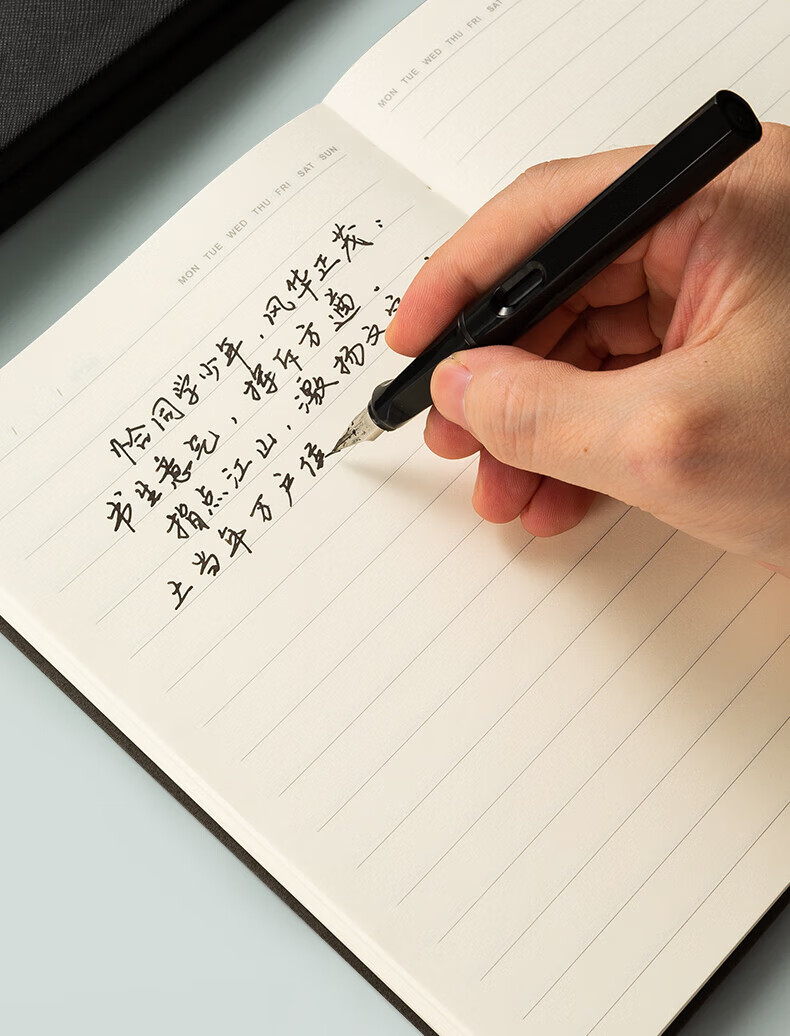 MON TUE WED THU FRI SAT SUN
恰同学少年,风华正茂;
书生意气,挥斥方遒.
指点江山,激扬文字
土当年万户侯
MON TUE WED THU FRI SAT